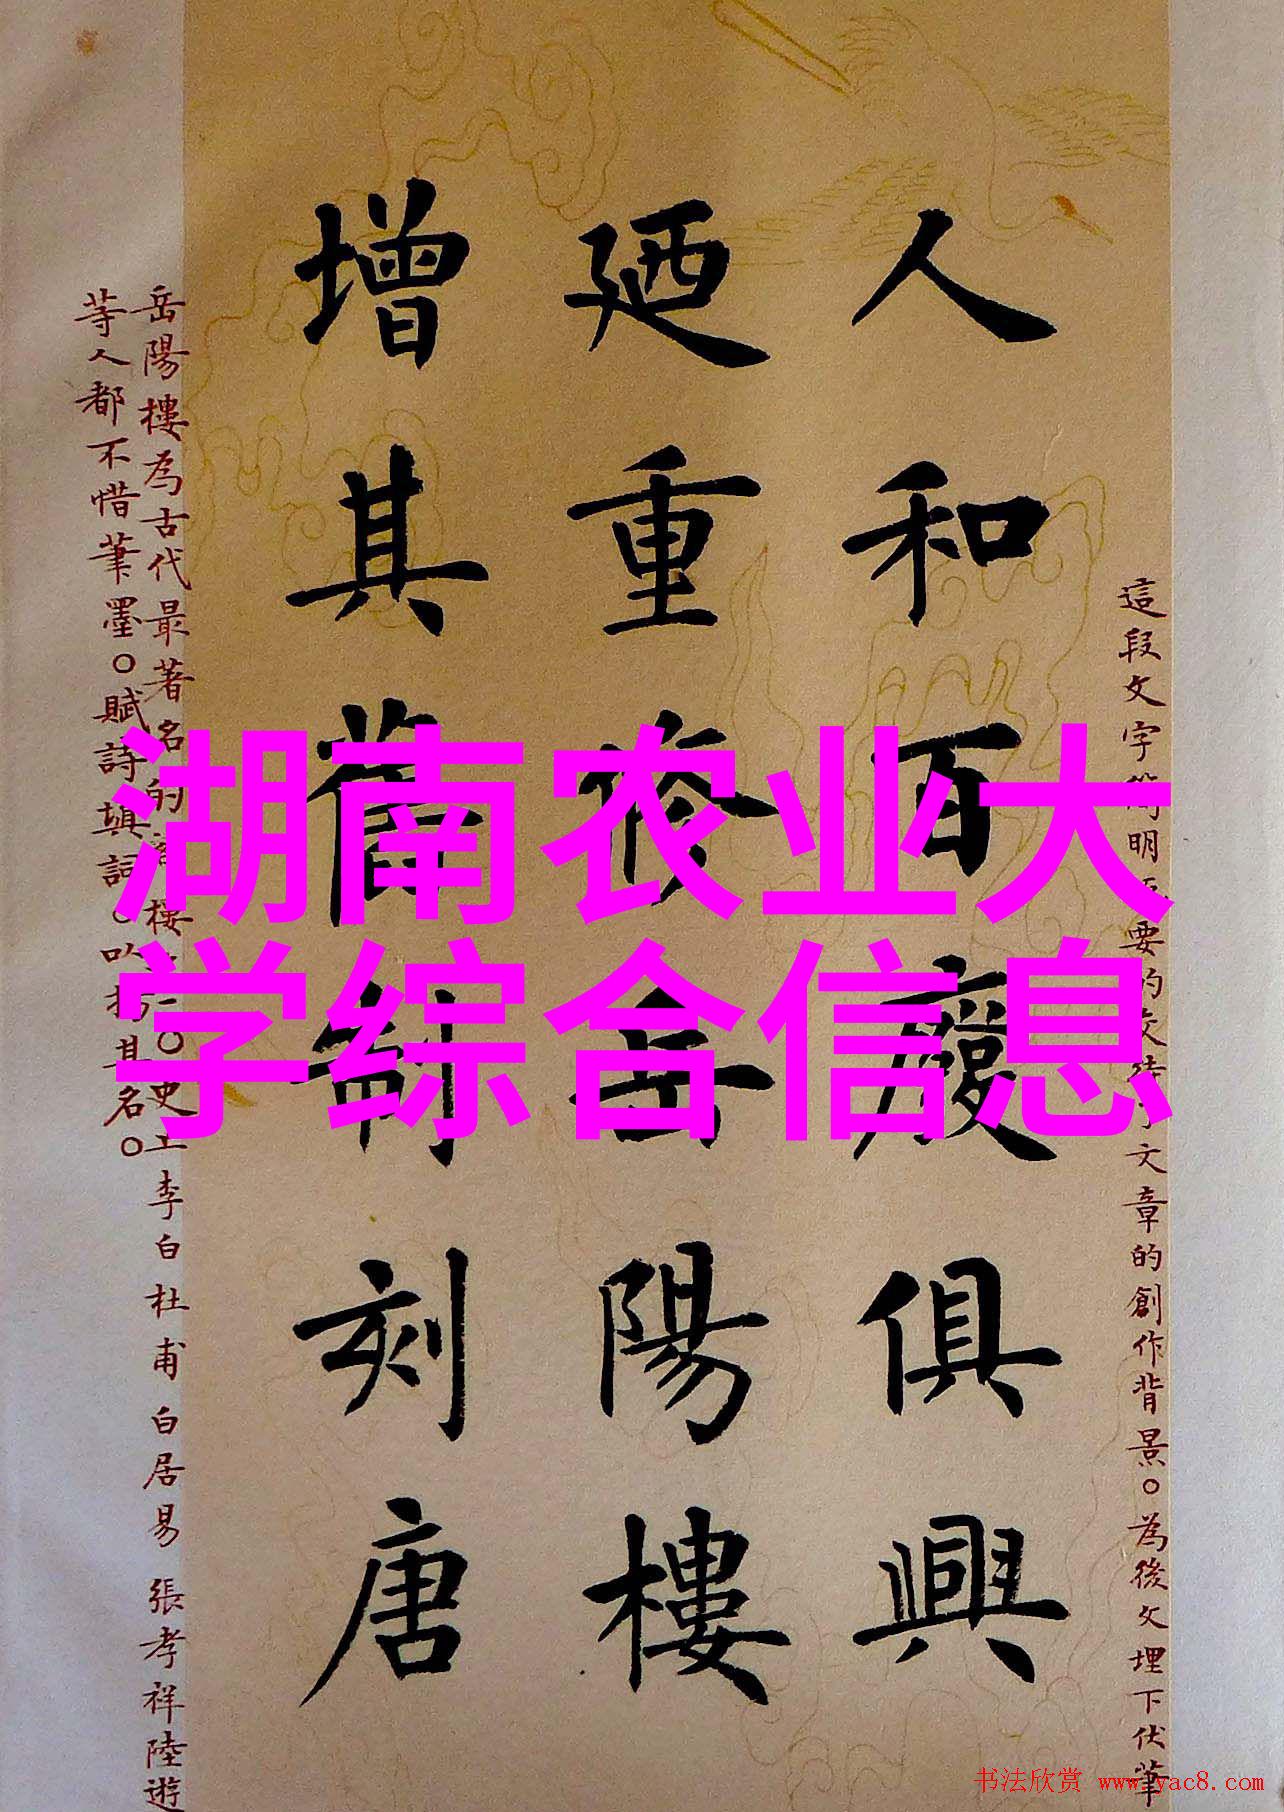 這段文字簡明扼要的交待了文章的創作背景。為後文埋下伏筆
人和百廢俱興
廼重修岳陽樓
增其舊制刻唐
岳陽樓為古代最著名的樓之一。史上李白 杜甫 白居易 張孝祥陸遊
等人都不惜筆墨。賦詩填詞。以揚其名。
湖南农业大
学综合信息
书法欣赏 www.yac8.com